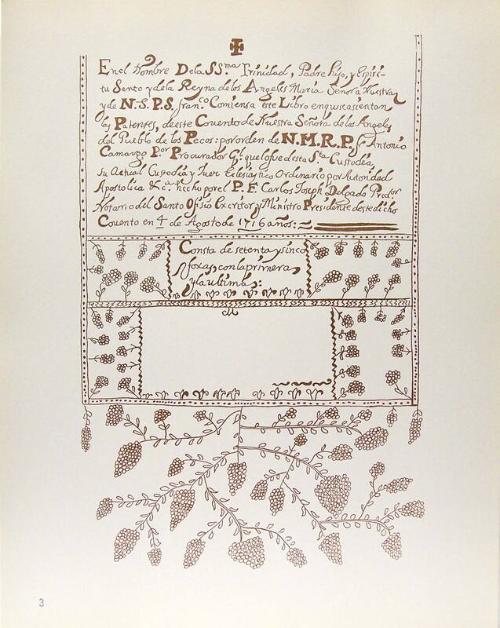 En el Nombre De la SS.ma Trinidad, Padre, hijo, y Espiri-
tu Santo y de la Reyna de los Angeles Maria Señora Nuestra
y de N.S.P.S. Franco Comiensa este Libro en que se asientan
las Patentes, de este Convento de Nuestra Señora de los Angeles
del Pueblo de los Pecos: por orden de N.M.R.P. fr Antonio
Camargo Por Procurador Gl que lo fue desta Sta Custodia,
Su Actual Custodio y Juez Eclesiastico Ordinario por Autoridad
Apostolica &c.a hicho por el P. F. Carlos Joseph Delgado Predr
Notario del Santo Ofisio Escritor y Ministro Presidente de este dicho
Covento en 4 de Agosto de 1716 años:
Consta de setenta y sinco
foxas con la primera
y la ultima:
3